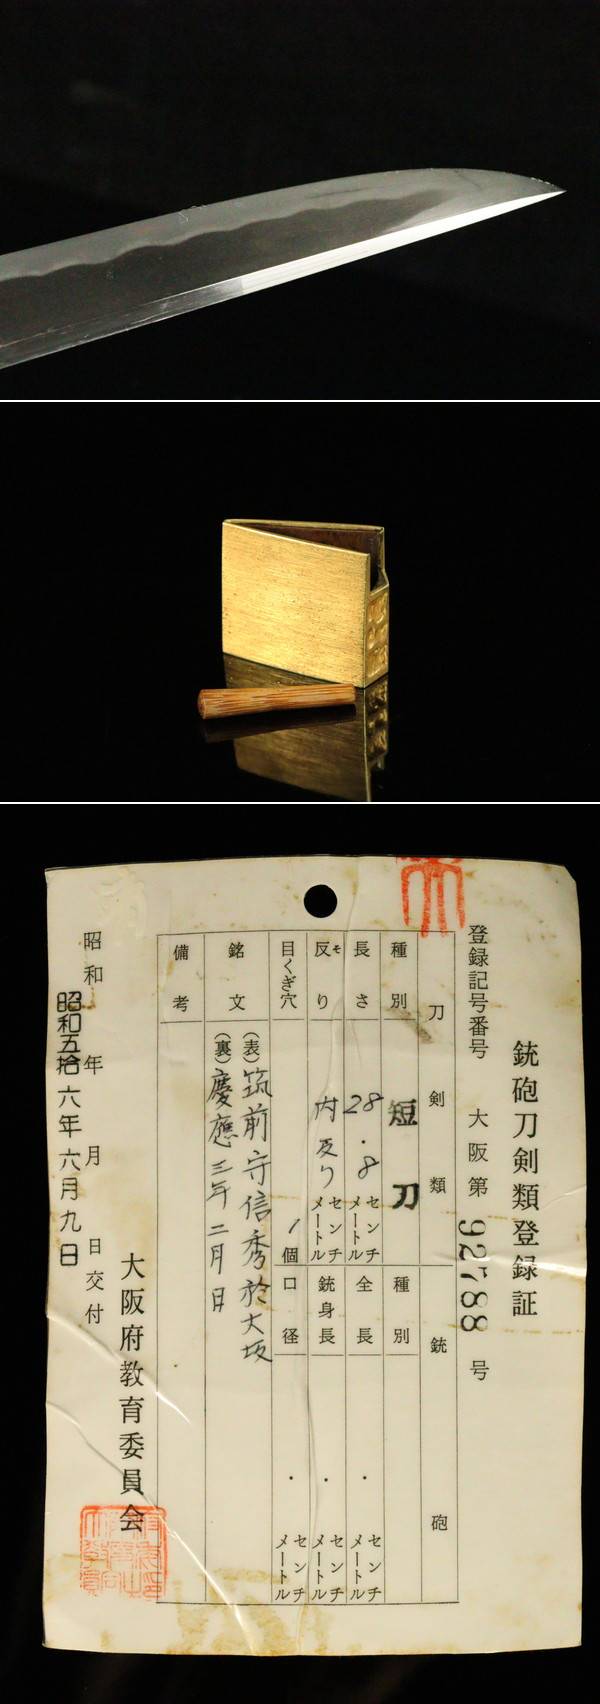 銃砲刀剣類登録証
登録記号番号 大阪第 92788 号
刀剣類
銃砲
種別 短刀
種別
長さ 28.8 センチメートル
全長 ・ センチメートル
反り ソ 内反り センチメートル
銃身長 ・ センチメートル
目くぎ穴 1個
口径
銘文
(表) 筑前守信秀於大坂
(裏) 慶應三年二月日
備考
昭和 年 月 日交付
昭和五拾六年六月九日
大阪府教育委員会